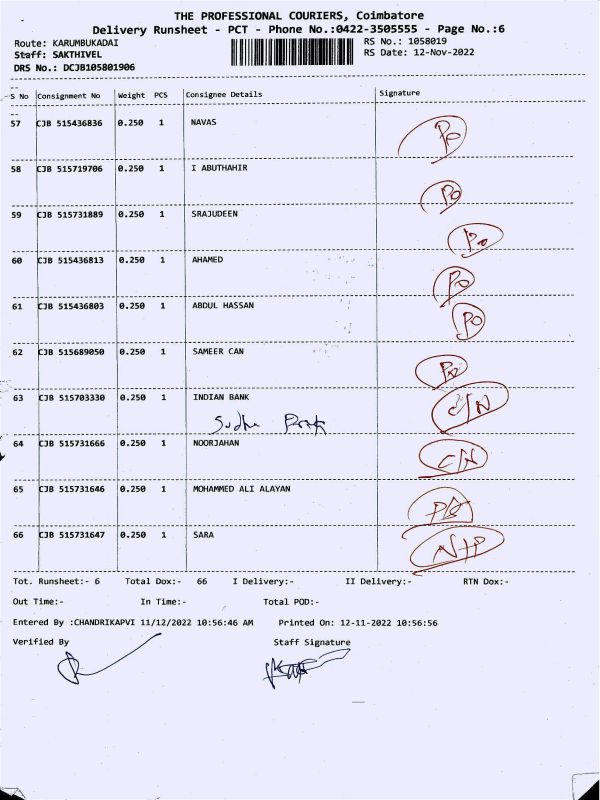 THE PROFESSIONAL COURIERS, Coimbatore
Delivery Runsheet - PCT - Phone No.:0422-3505555 - Page No.:6
Route: KARUMBUKADAI RS No.: 1058019
Staff: SAKTHIVEL RS Date: 12-Nov-2022
DRS No.: DCJB105801906
S No Consignment No Weight PCS Consignee Details Signature
57 CJB 515436836 0.250 1 NAVAS Po
58 CJB 515719706 0.250 1 I ABUTHAHIR Po
59 CJB 515731889 0.250 1 SRAJUDEEN Po
60 CJB 515436813 0.250 1 AHAMED Po
61 CJB 515436803 0.250 1 ABDUL HASSAN Po
62 CJB 515689050 0.250 1 SAMEER CAN
63 CJB 515703330 0.250 1 INDIAN BANK C/N
Sudha
64 CJB 515731666 0.250 1 NOORJAHAN C/N
65 CJB 515731646 0.250 1 MOHAMMED ALI ALAYAN
66 CJB 515731647 0.250 1 SARA N+P
Tot. Runsheet:- 6 Total Dox:- 66 I Delivery:- II Delivery:- RTN Dox:-
Out Time:- In Time:- Total POD:-
Entered By :CHANDRIKAPVI 11/12/2022 10:56:46 AM Printed On: 12-11-2022 10:56:56
Verified By Staff Signature